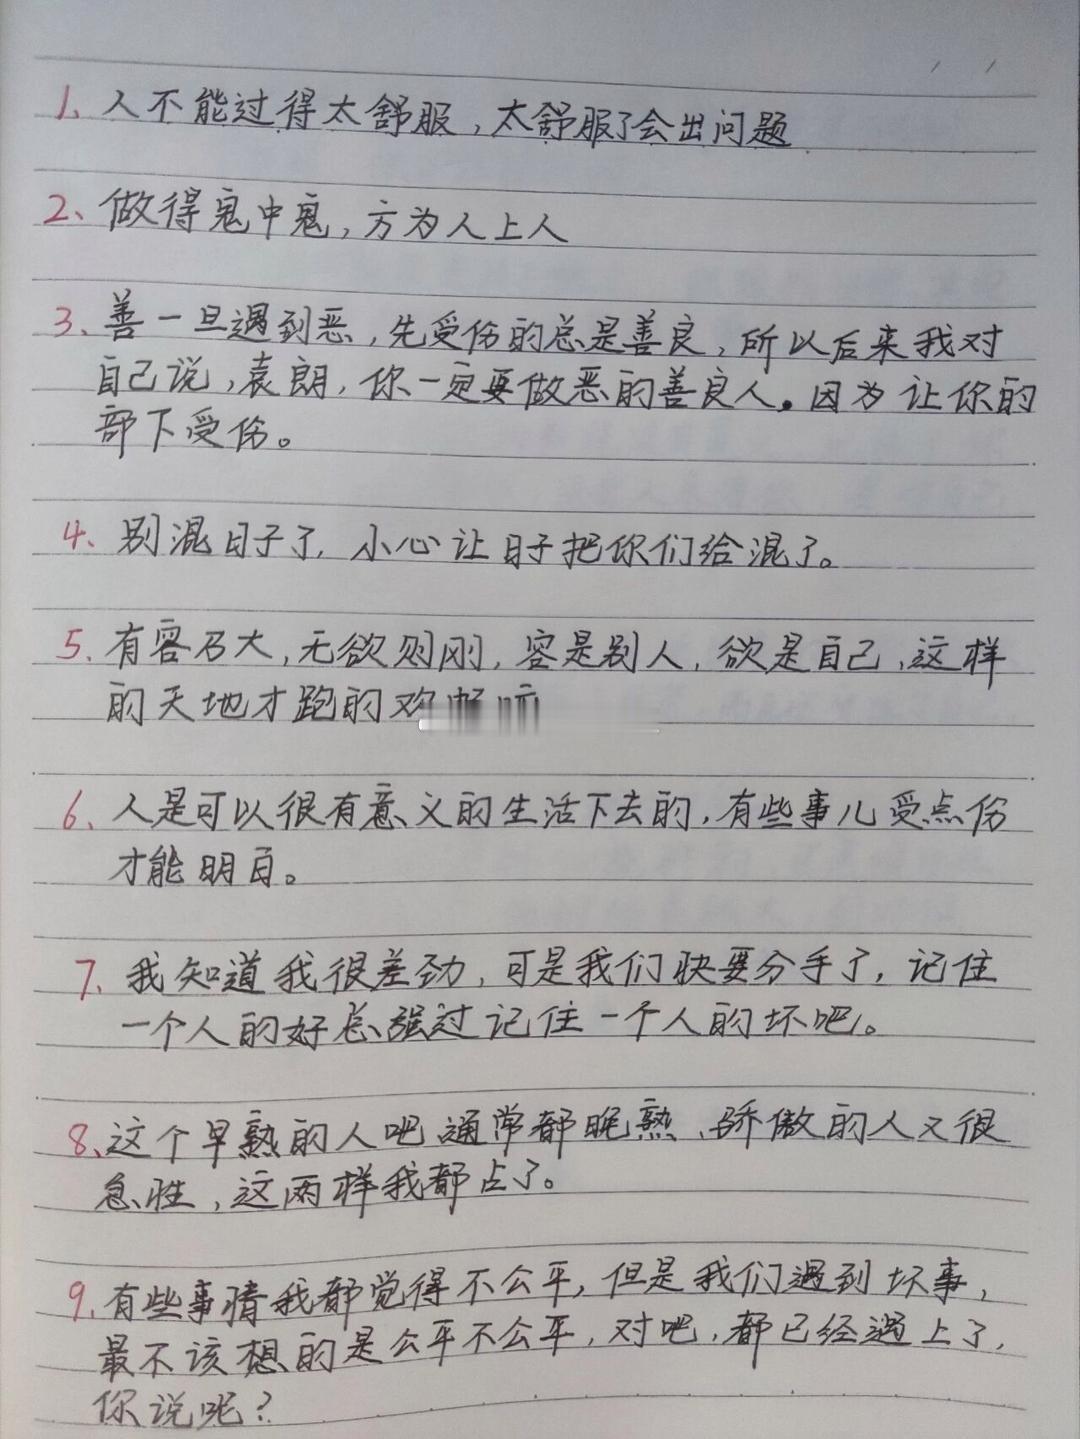 1、人不能过得太舒服，太舒服了会出问题
2、做得鬼中鬼，方为人上人
3、善一旦遇到恶，先受伤的总是善良，所以后来我对
自己说，袁朗，你一定要做恶的善良人。因为让你的
部下受伤。
4、别混日子了，小心让日子把你们给混了。
5、有容乃大，无欲则刚，容是别人，欲是自己，这样
的天地才跑的欢
6、人是可以很有意义的生活下去的，有些事儿受点伤
才能明白。
7、我知道我很差劲，可是我们快要分手了，记住
一个人的好总强过记住一个人的坏吧。
8、这个早熟的人吧通常都晚熟、骄傲的人又很
急性，这两样我都占了。
9、有些事情我都觉得不公平，但是我们遇到坏事，
最不该想的是公平不公平，对吧，都已经遇上了，
你说呢？